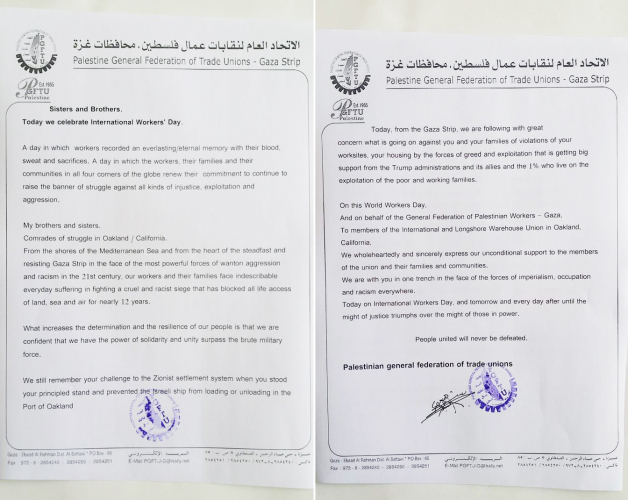 الاتحاد العام لنقابات عمال فلسطين، محافظات غزة
Palestine General Federation of Trade Unions - Gaza Strip
PGFTU
Est 1965
PGFTU
Palestine
Sisters and Brothers.
Today we celebrate International Workers' Day.
A day in which workers recorded an everlasting/eternal memory with their blood,
sweat and sacrifices. A day in which the workers, their families and their
communities in all four corners of the globe renew their commitment to continue to
raise the banner of struggle against all kinds of injustice, exploitation and
aggression.
My brothers and sisters.
Comrades of struggle in Oakland / California.
From the shores of the Mediterranean Sea and from the heart of the steadfast and
resisting Gaza Strip in the face of the most powerful forces of wanton aggression
and racism in the 21st century, our workers and their families face indescribable
everyday suffering in fighting a cruel and racist siege that has blocked all life access
of land, sea and air for nearly 12 years.
What increases the determination and the resilience of our people is that we are
confident that we have the power of solidarity and unity surpass the brute military
force.
We still remember your challenge to the Zionist settlement system when you stood
your principled stand and prevented the Israeli ship from loading or unloading in the
Port of Oakland
الاتحاد العام لنقابات عمال فلسطين، محافظات غزة
Palestine General Federation of Trade Unions - Gaza Strip
PGFTU
Est 1965
PGFTU
Palestine
Today, from the Gaza Strip, we are following with great
concern what is going on against you and your families of violations of your
worksites, your housing by the forces of greed and exploitation that is getting big
support from the Trump administrations and its allies and the 1% who live on the
exploitation of the poor and working families.
On this World Workers Day,
And on behalf of the General Federation of Palestinian Workers – Gaza,
To members of the International and Longshore Warehouse Union in Oakland,
California,
We wholeheartedly and sincerely express our unconditional support to the members
of the union and their families and communities.
We are with you in one trench in the face of the forces of imperialism, occupation
and racism everywhere.
Today on International Workers Day, and tomorrow and every day after until the
might of justice triumphs over the might of those in power.
People united will never be defeated.
Palestinian general federation of trade unions